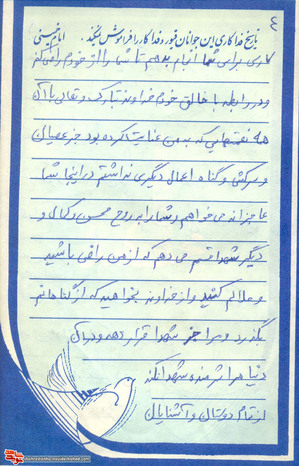 ۴
تاریخ فداکاری این جوانان غیور و فداکار را فراموش نمیکند. امام خمینی
کاری برای شما انجام بدهم تا شما را از خودم راضی کنم
و در رابطه با خالق خودم خداوند تبارک و تعالی با آن
همه نعمتهایی که به من عنایت کرده بود جز عصیان
و سرکشی و گناه اعمال دیگری نداشتم در اینجا شما
عاجزانه می خواهم و شما را به روح محسن و کمال و
دیگر شهدا قسم می دهم که از من راضی باشید
و حلالم کنید و از خداوند بخواهید که از گناهانم
بگذرد و مرا جز شهدا قرار دهد و در آن
دنیا مرا شرمنده شهدا نکند
از تمام دوستان و آشنایان